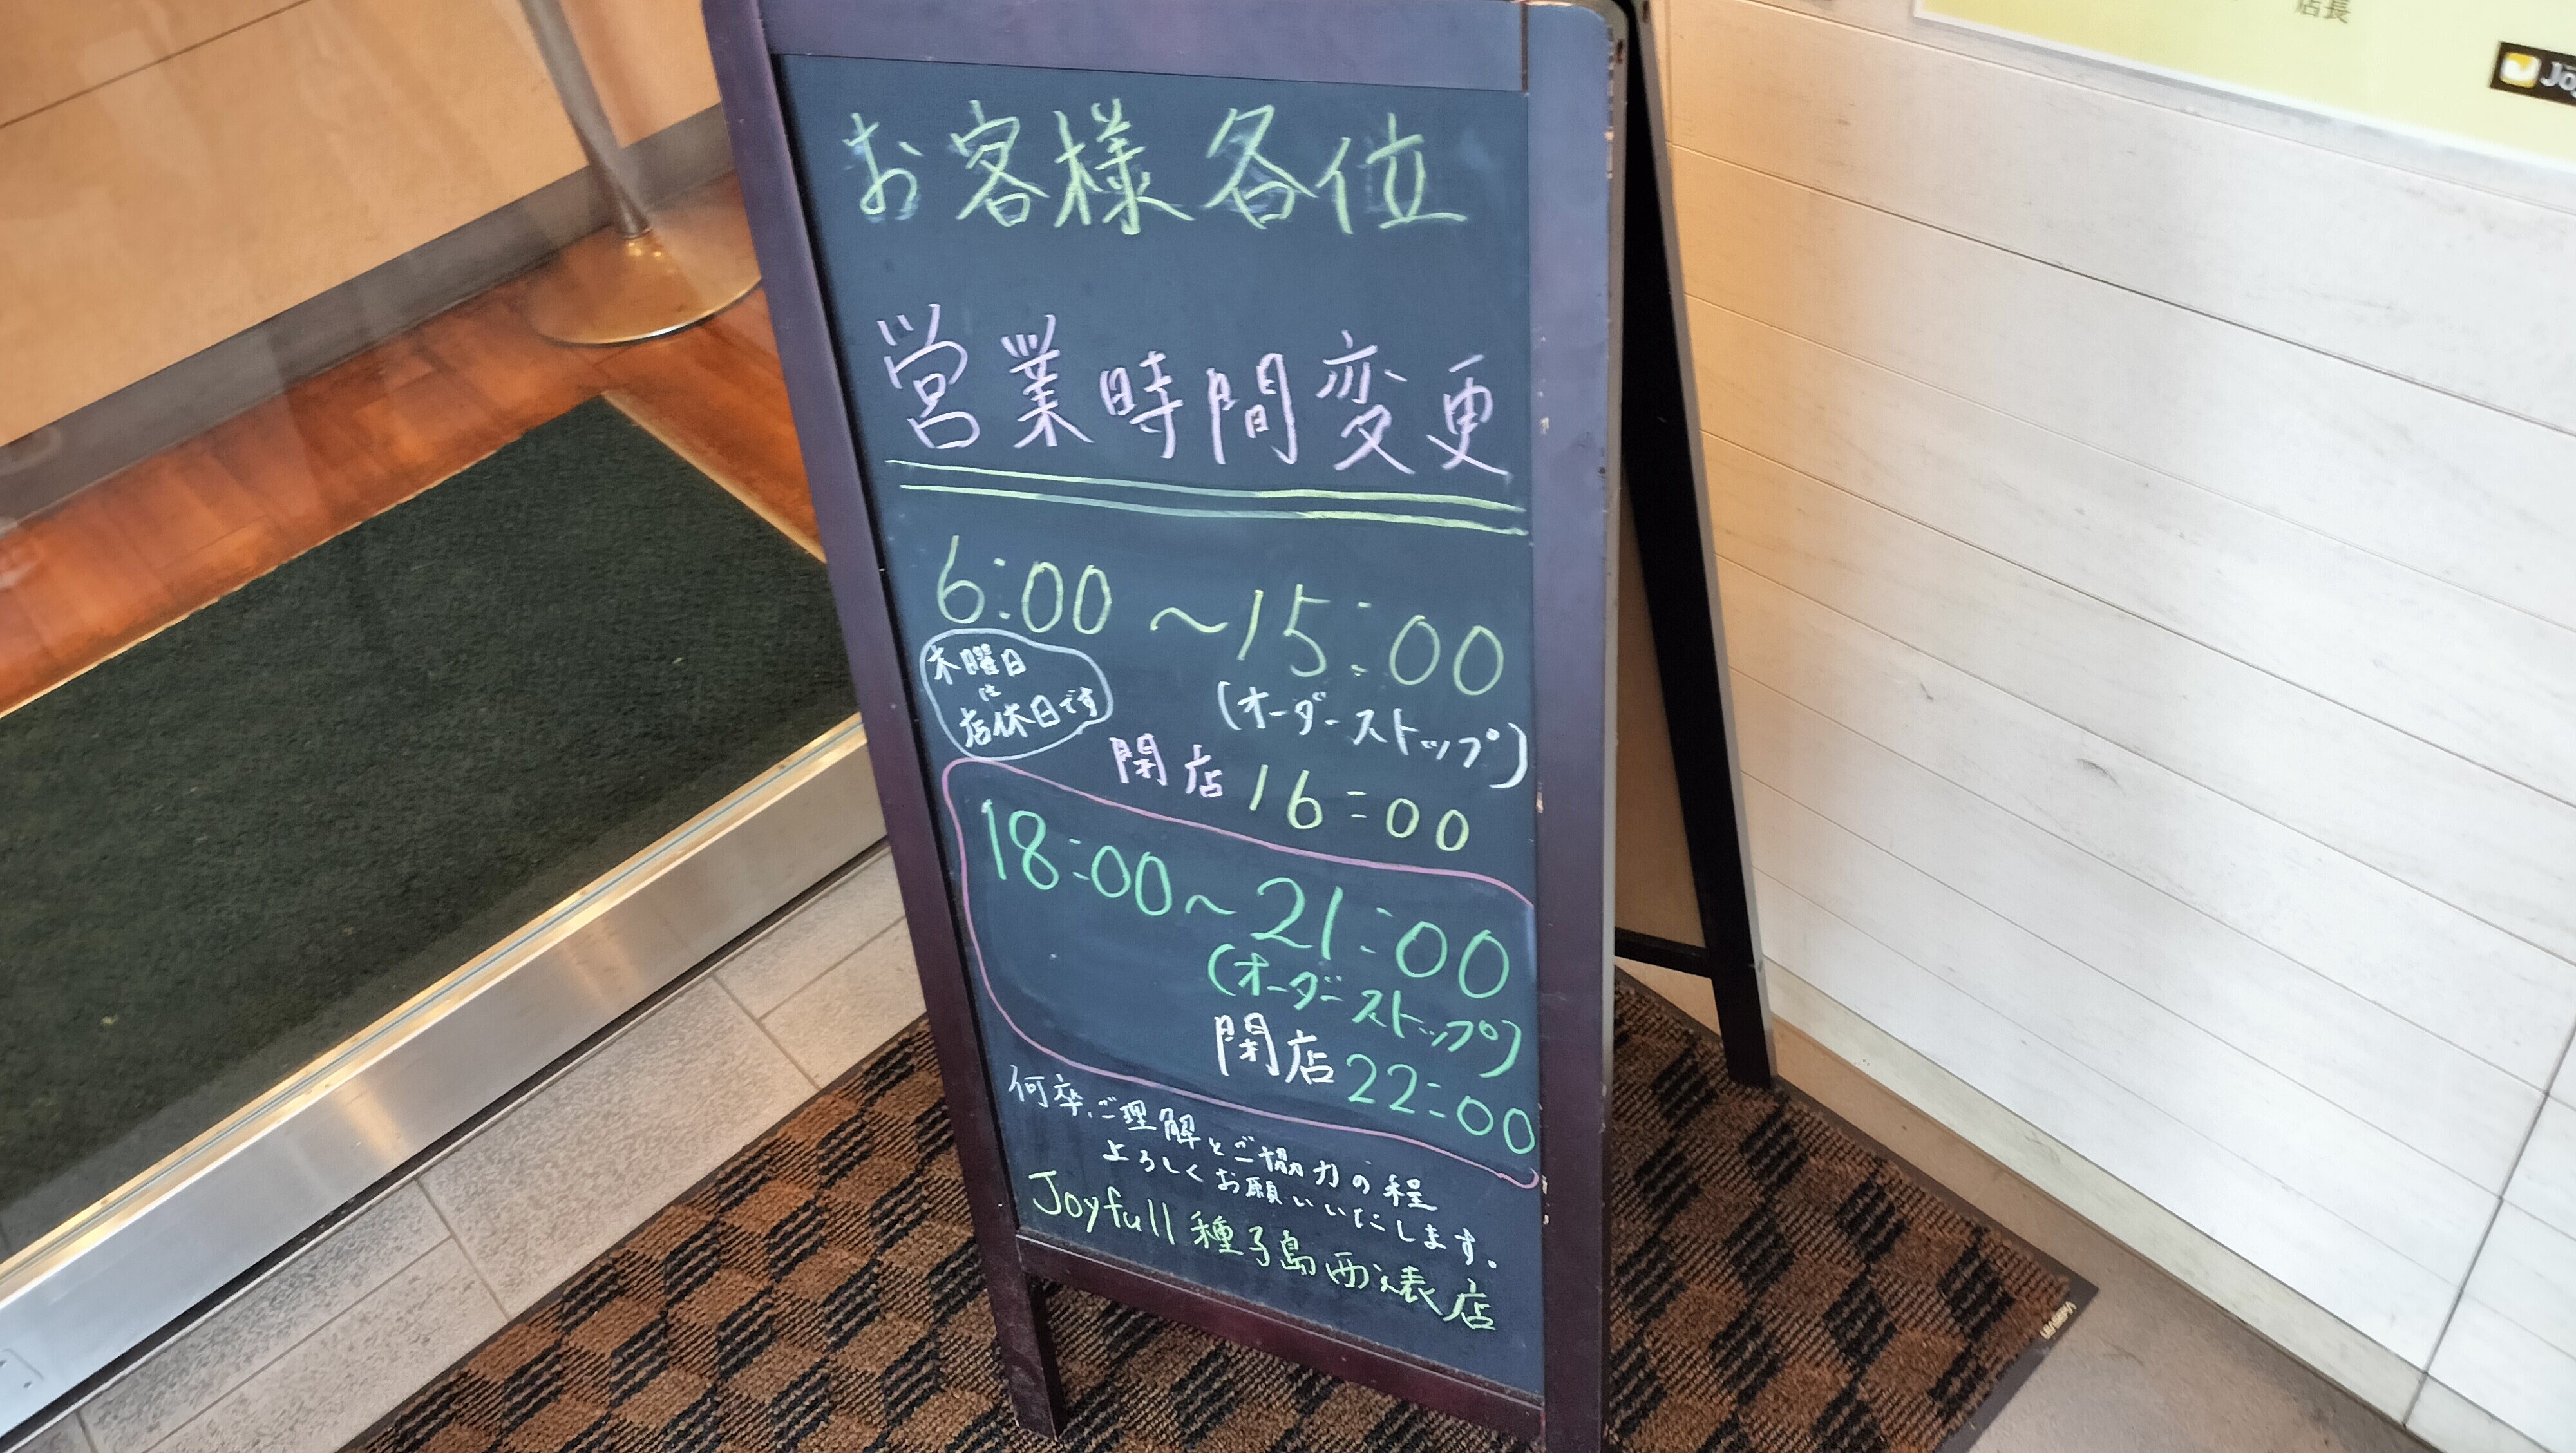 お客様各位
営業時間変更
6:00～15:00
(オーダーストップ)
木曜日
は
店休日です
閉店 16:00
18:00～21:00
(オーダーストップ)
閉店 22:00
何卒、ご理解とご協力の程
よろしくお願いいたします。
Joyfull 種子島西之表店
店長
Jo